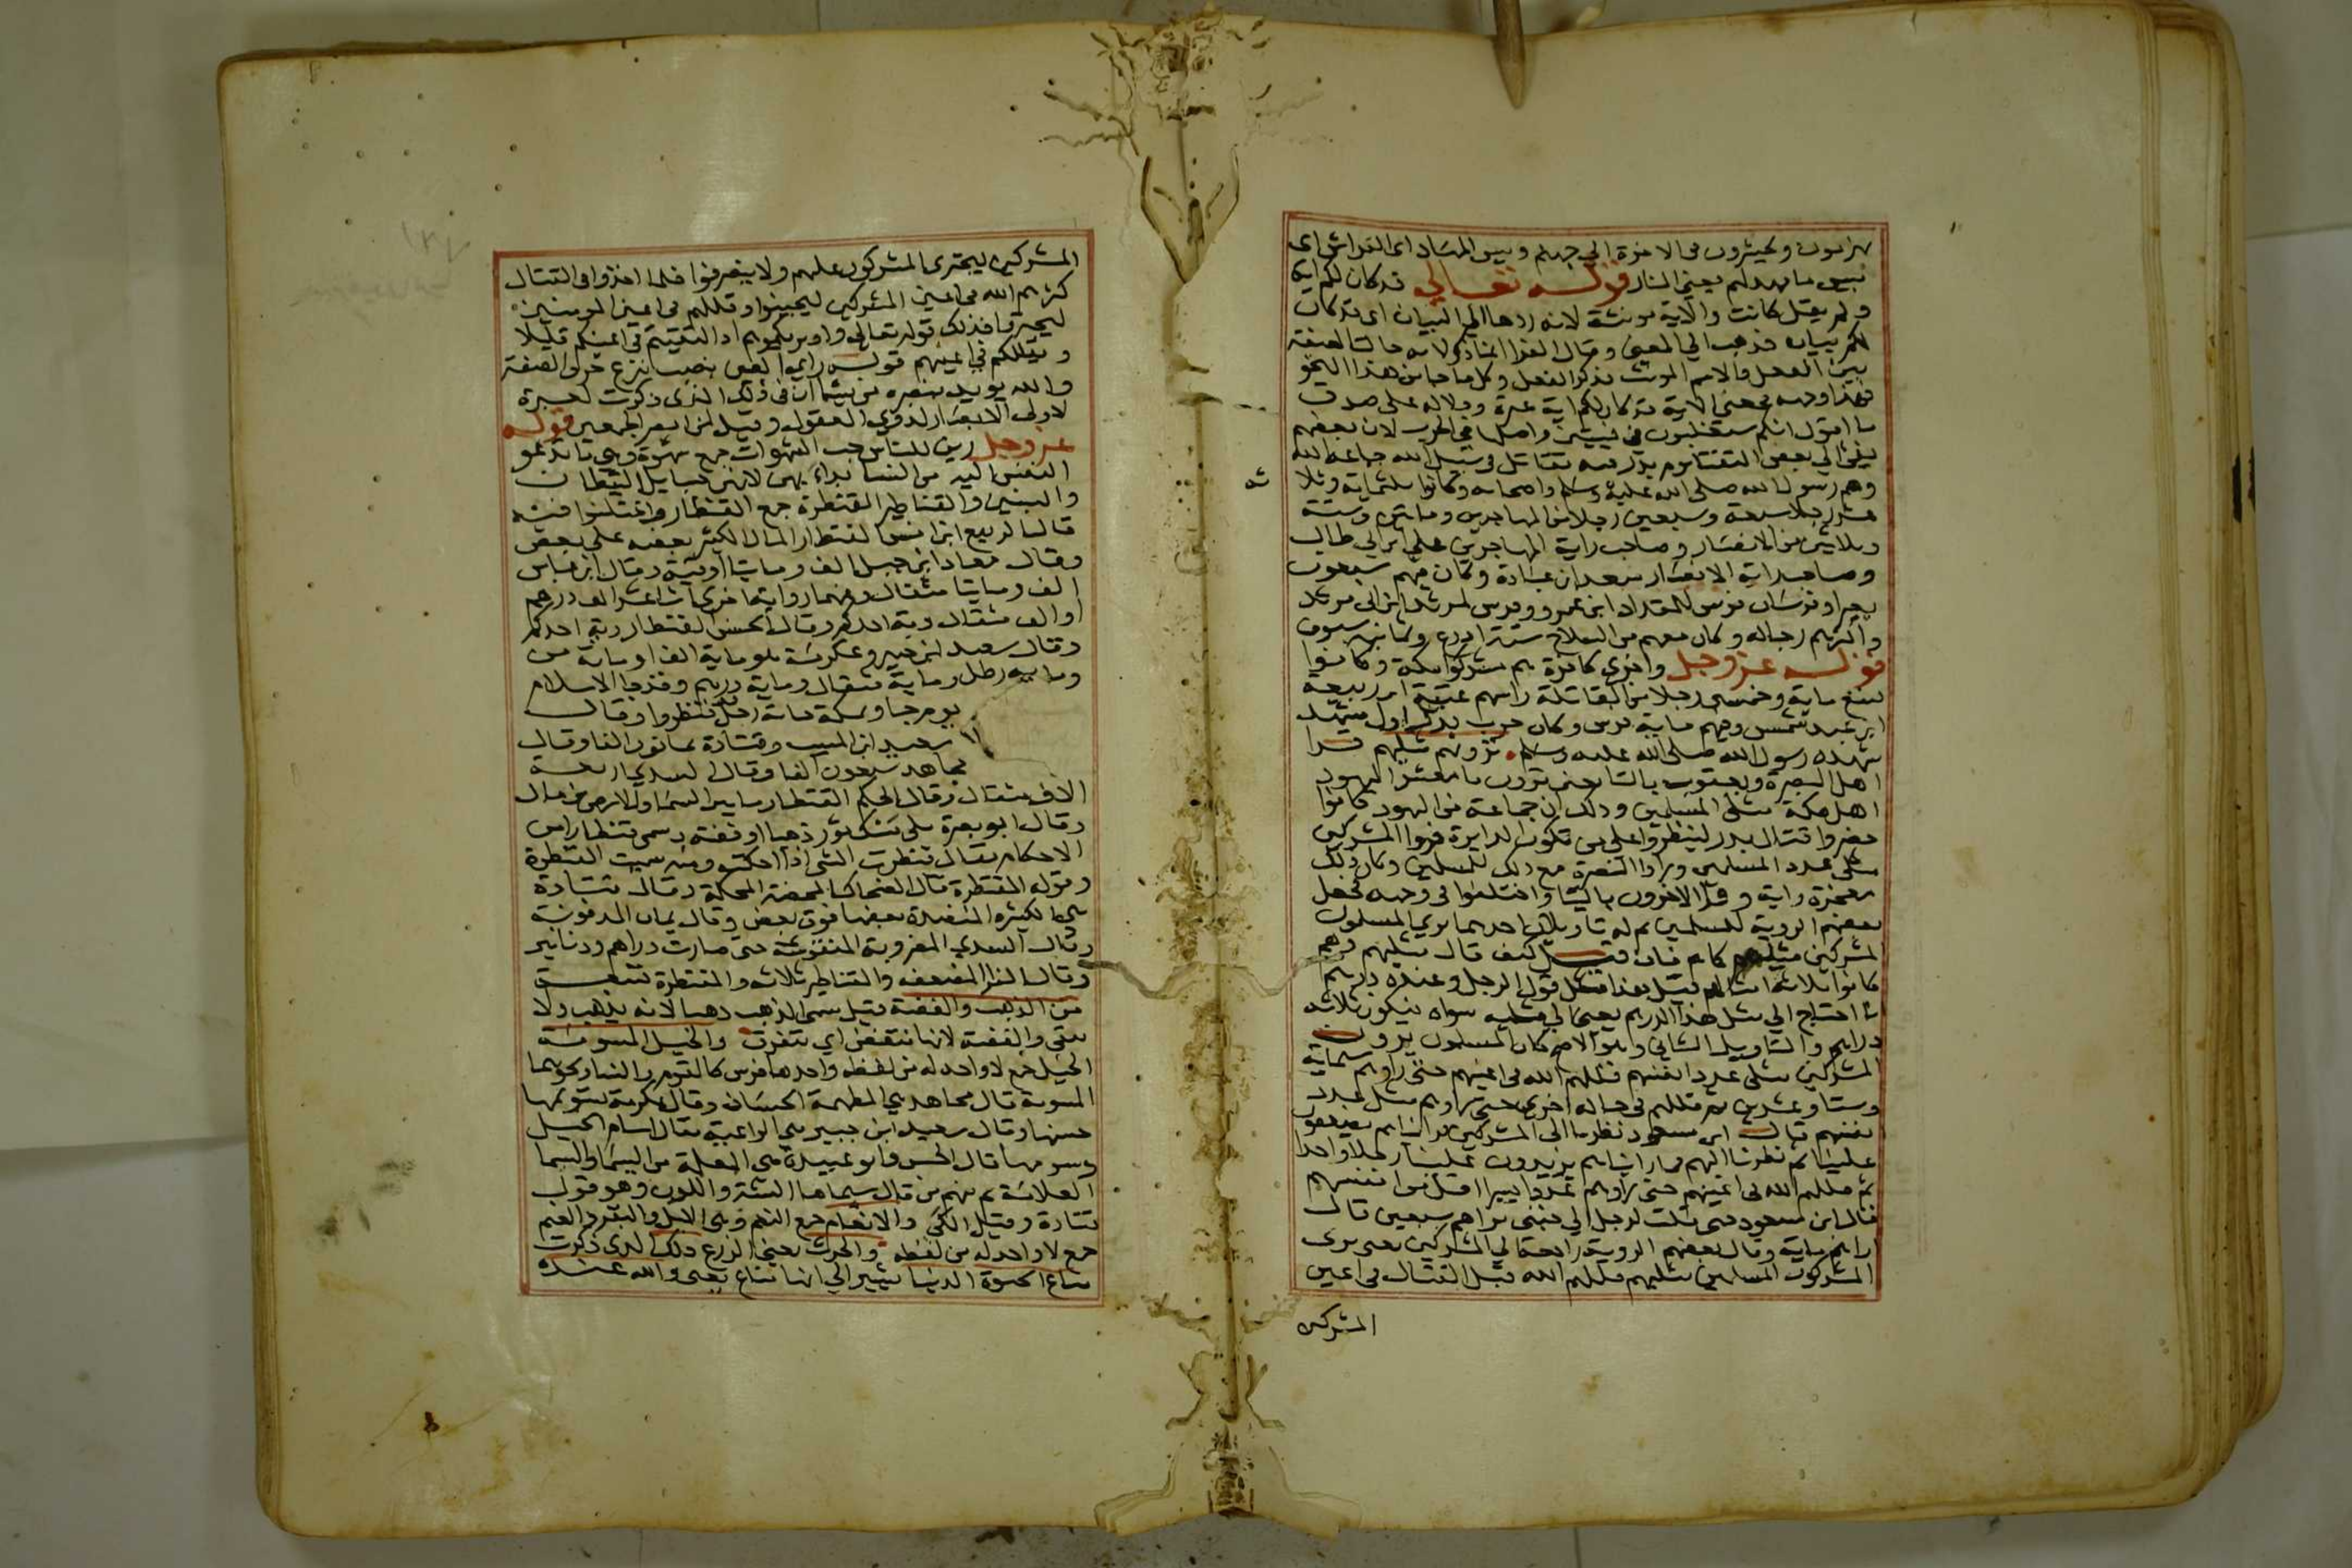 تهزمون وتحشرون في الاخرة الي جهنم وبيس المهاد اي الفراش اي
بيس ما مهد لهم يعني النار قوله تعالي قد كان لكم اية
ولم يقل كانت والاية مونثة لانه ردها الي البيان اي قد كان
لكم بيان فذهب الي المعني وقال الفرا انما ذكر لانه حالت الصفة
بين الفعل والاسم المونث فذكر الفعل وكل ما جا من هذا النحو
فهذا وجهه فمعني الاية قد كان لكم اية عبرة ودلالة علي صدق
ما اقول انكم ستغلبون في فيتين واصلها في الحرب لان بعضهم
يفي الي بعض التقتا يوم بدر فية تقاتل في سبيل الله جماعة الله
وهم رسول الله صلى الله عليه وسلم واصحابه وكانوا ثلثماية وثلا
عشر رجلا سبعة وسبعين رجلا من المهاجرين وماتين وستة
وثلاثين من الانصار وصاحب راية المهاجرين علي ابن ابي طالب
وصاحب راية الانصار سعد ابن عبادة وكان فيهم سبعون
بعيرا وفرسان فرس للمقداد ابن عمرو وفرس لمرثد ابن ابي مرثد
واكثرهم رجاله وكان معهم من السلاح ستة ادرع وثمانية سيوف
قوله عز وجل واخري كافرة هم مشركوا مكة وكانوا
تسع ماية وخمسين رجلا من المقاتلة راسهم عتبة ابن ربيعة
ابن عبد شمس وفيهم ماية فرس وكان حرب بدر اول مشهد
شهده رسول الله صلى الله عليه وسلم ترونهم مثليهم قرا
اهل البصرة ويعقوب بالتا يعني ترون يا معشر اليهود
اهل مكة مثلي المسلمين وذلك ان جماعة من اليهود كانوا
حضروا قتال بدر لينظروا علي من تكون الدايرة فراوا المشركين
مثلي عدد المسلمين وراوا النصرة مع ذلك للمسلمين وكان ذلك
معجزة واية وقرا الاخرون باليا واختلفوا في وجهه فجعل
بعضهم الروية للمسلمين ثم له تاويلان احدهما يري المسلمون
المشركين مثليهم كما هم فان قيل كيف قال مثليهم وهم
كانوا ثلاثة امثالهم قيل هذا مثل قول الرجل وعنده درهم
انا احتاج الي مثل هذا الدرهم يعني الي مثليه سواه فيكون ثلاثة
دراهم والتاويل الثاني وهو الاصح كان المسلمون يرون
المشركين مثلي عدد انفسهم قللهم الله في اعينهم حتي راوهم ستماية
وستا وعشرين ثم قللهم في حالة اخري حتي راوهم مثل عدد
انفسهم قال ابن مسعود نظرنا الي المشركين فرايناهم يضعفون
علينا ثم نظرنا اليهم فما رايناهم يزيدون علينا رجلا واحدا
ثم قللهم الله في اعينهم حتي راوهم عددا يسيرا اقل من انفسهم
قال ابن مسعود حتي قلت لرجل الي جنبي تراهم سبعين قال
اراهم ماية وقال بعضهم الروية راجعة الي المشركين يعني يري
المشركون المسلمين مثليهم قللهم الله قبل القتال في اعين
المشركين
المشركين ليجتري المشركون عليهم ولا ينصرفوا فلما اخذوا في القتال
كثرهم الله في اعين المشركين ليجبنوا وقللهم في اعين المومنين
ليجتروا فذلك قوله تعالي واذ يريكموهم اذ التقيتم في اعينكم قليلا
ويقللكم في اعينهم قوله راي العين نصب بنزع حرف الصفة
والله يويد بنصره من يشا ان في ذلك الذي ذكرت لعبرة
لاولي الابصار لذوي العقول وقيل لمن ابصر الجمعين قوله
عز وجل زين للناس حب الشهوات جمع شهوة وهي ما تدعو
النفس اليه من النسا بدا بهن لانهن حبايل الشيطان
والبنين والقناطير المقنطرة جمع القنطار واختلفوا فيه
قال الربيع ابن انس القنطار المال الكثير بعضه علي بعض
وقال معاد ابن جبل الف ومايتا اوقية وقال ابن عباس
الف ومايتا مثقال وعنهما رواية اخري اثنا عشر الف درهم
او الف مثقال دية احدكم وقال الحسن القنطار دية احدكم
وقال سعيد ابن جبير وعكرمة هو ماية الف وماية من
وماية رطل وماية مثقال وماية درهم وقد جا الاسلام
يوم جا وبمكة ماية رجل قد قنطروا وقال
سعيد ابن المسيب وقتادة ثمانون الفا وقال
مجاهد سبعون الفا وقال السدي اربعة
الاف مثقال وقال الحكم القنطار ما بين السما والارض من مال
وقال ابو نصرة ملي مسك ثور ذهبا او فضة وسمي قنطارا من
الاحكام يقال قنطرت الشي اذا احكمته ومنه سميت القنطرة
وقوله المقنطرة قال الضحاك المحصنة المحكمة وقال قتادة
هي الكثيرة المنضدة بعضها فوق بعض وقال يمان المدفونة
وقال السدي المضروبة المنقوشة حتي صارت دراهم ودنانير
وقال الفرا المضعفة والقناطير ثلاثة والمقنطرة تسعة
من الذهب والفضة قيل سمي الذهب ذهبا لانه يذهب ولا
يبقي والفضة لانها تنفض اي تتفرق والخيل المسومة
الخيل جمع لا واحد له من لفظه واحدها فرس كالقوم والنسا ونحوهما
المسومة قال مجاهد هي المطهمة الحسان وقال عكرمة تسويمها
حسنها وقال سعيد ابن جبير هي الراعية يقال اسام الخيل
وسومها قال الحسن وابو عبيدة هي المعلمة من السيما والسيما
العلامة ثم منهم من قال سيماها الشية واللون وهو قول
قتادة وقيل الكي والانعام جمع النعم وهي الابل والبقر والغنم
جمع لا واحد له من لفظه والحرث يعني الزرع ذلك الذي ذكرت
متاع الحيوة الدنيا يشير الي انها متاع يفني والله عنده